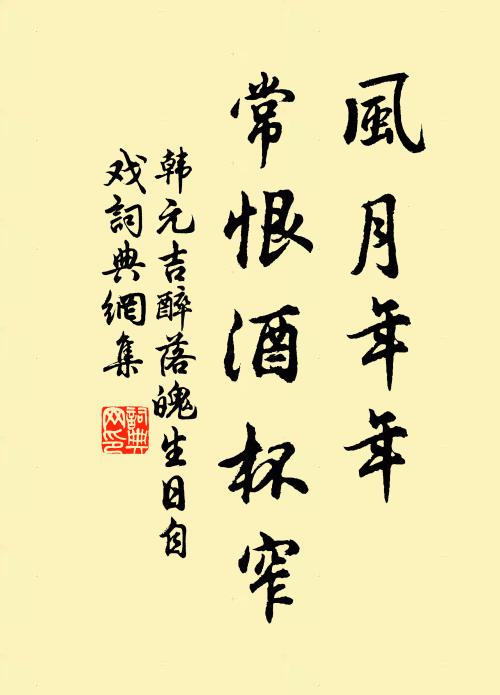 風月年年
常恨酒杯窄
韩元吉醉落魄生日自
戏詞典網集
詞典
网印